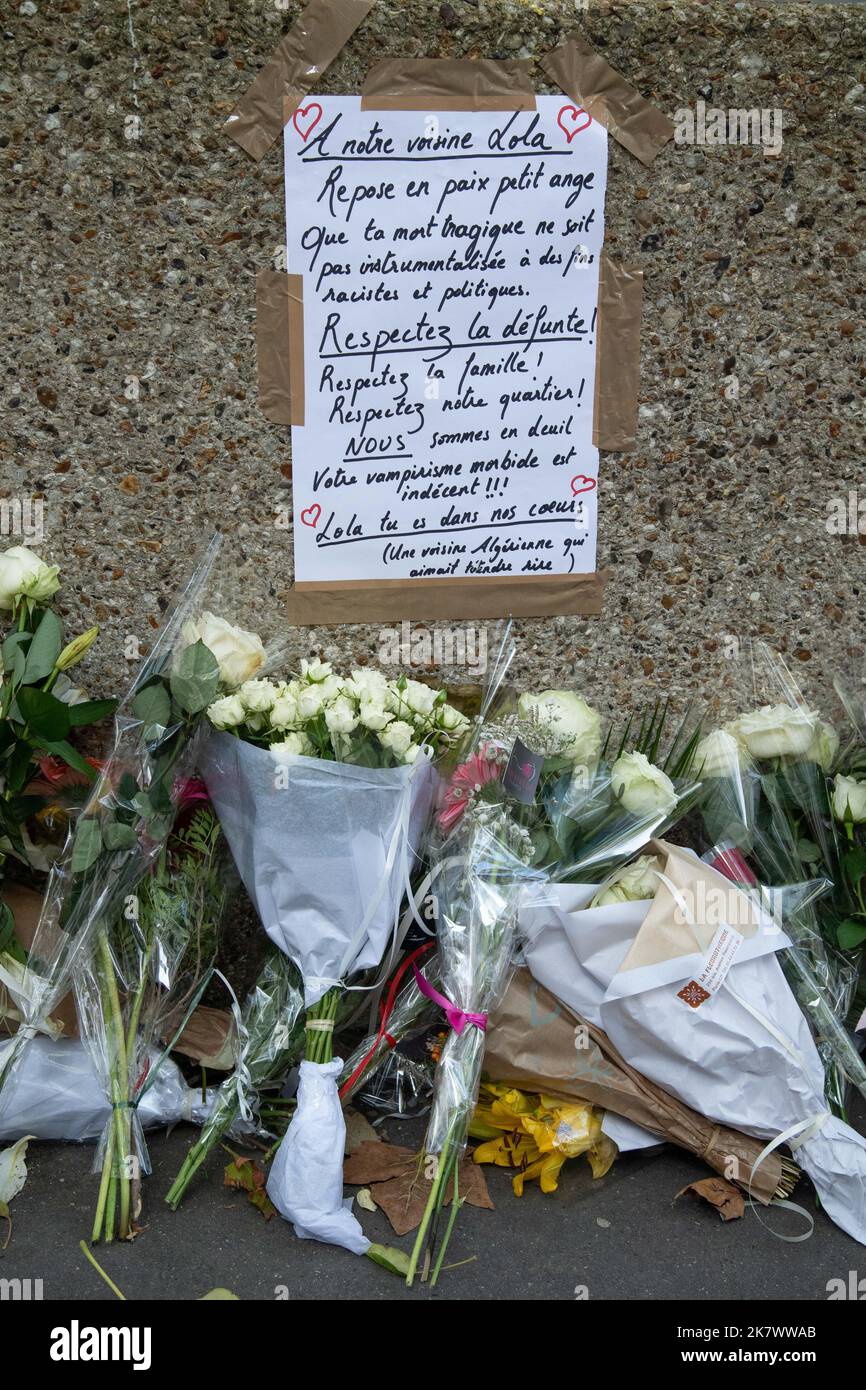 A notre voisine Lola
Repose en paix petit ange
Que ta mort tragique ne soit
pas instrumentalisée à des fins
racistes et politiques.
Respectez la défunte!
Respectez la famille!
Respectez notre quartier!
NOUS sommes en deuil
Votre vampirisme morbide est
indécent!!!
Lola tu es dans nos cœurs
(Une voisine Algérienne qui
aimait t'entendre rire)
LA FLEUROTHEQUE
alamy
Image ID: 2K7WWAB
www.alamy.com